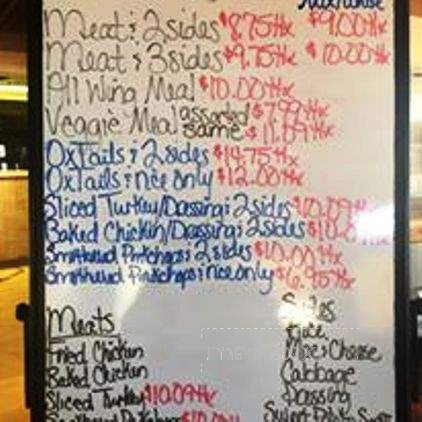 Meat & 2 sides $8.75+tx $9.00+tx
Meat & 3 sides $9.75+tx $10.00+tx
All Wing Meal $10.00+tx
Veggie Meal assorted $7.99+tx
same $11.09+tx
OxTails & 2 sides $14.75+tx
OxTails & rice only $12.00+tx
Sliced Turkey/Dressing & 2 sides $10.09+tx
Baked Chickin/Dressing & 2 sides
Smothered Porkchops & 2 sides $10.00+tx
Smothered Porkchops & rice only $6.95+tx
Meats
Fried Chicken
Baked Chicken
Sliced Turkey $10.09+tx
Sides
Rice
Mac & Cheese
Cabbage
Dressing
Sweet Potato